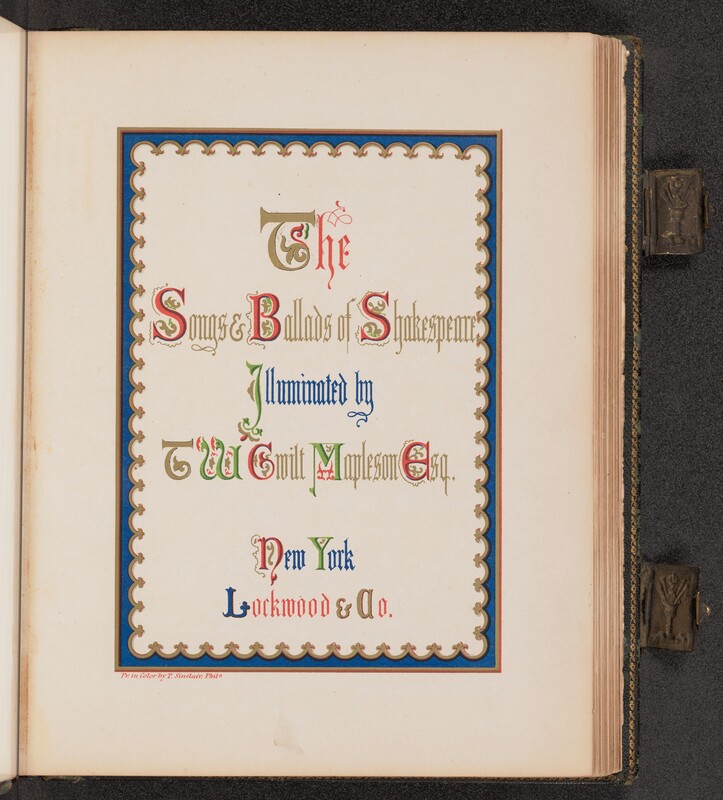 The
Songs & Ballads of Shakespeare,
Illuminated by
T W Gwilt Mapleson Esq.
New York
Lockwood & Co.
Pr. in Color by T. Sinclair, Phila